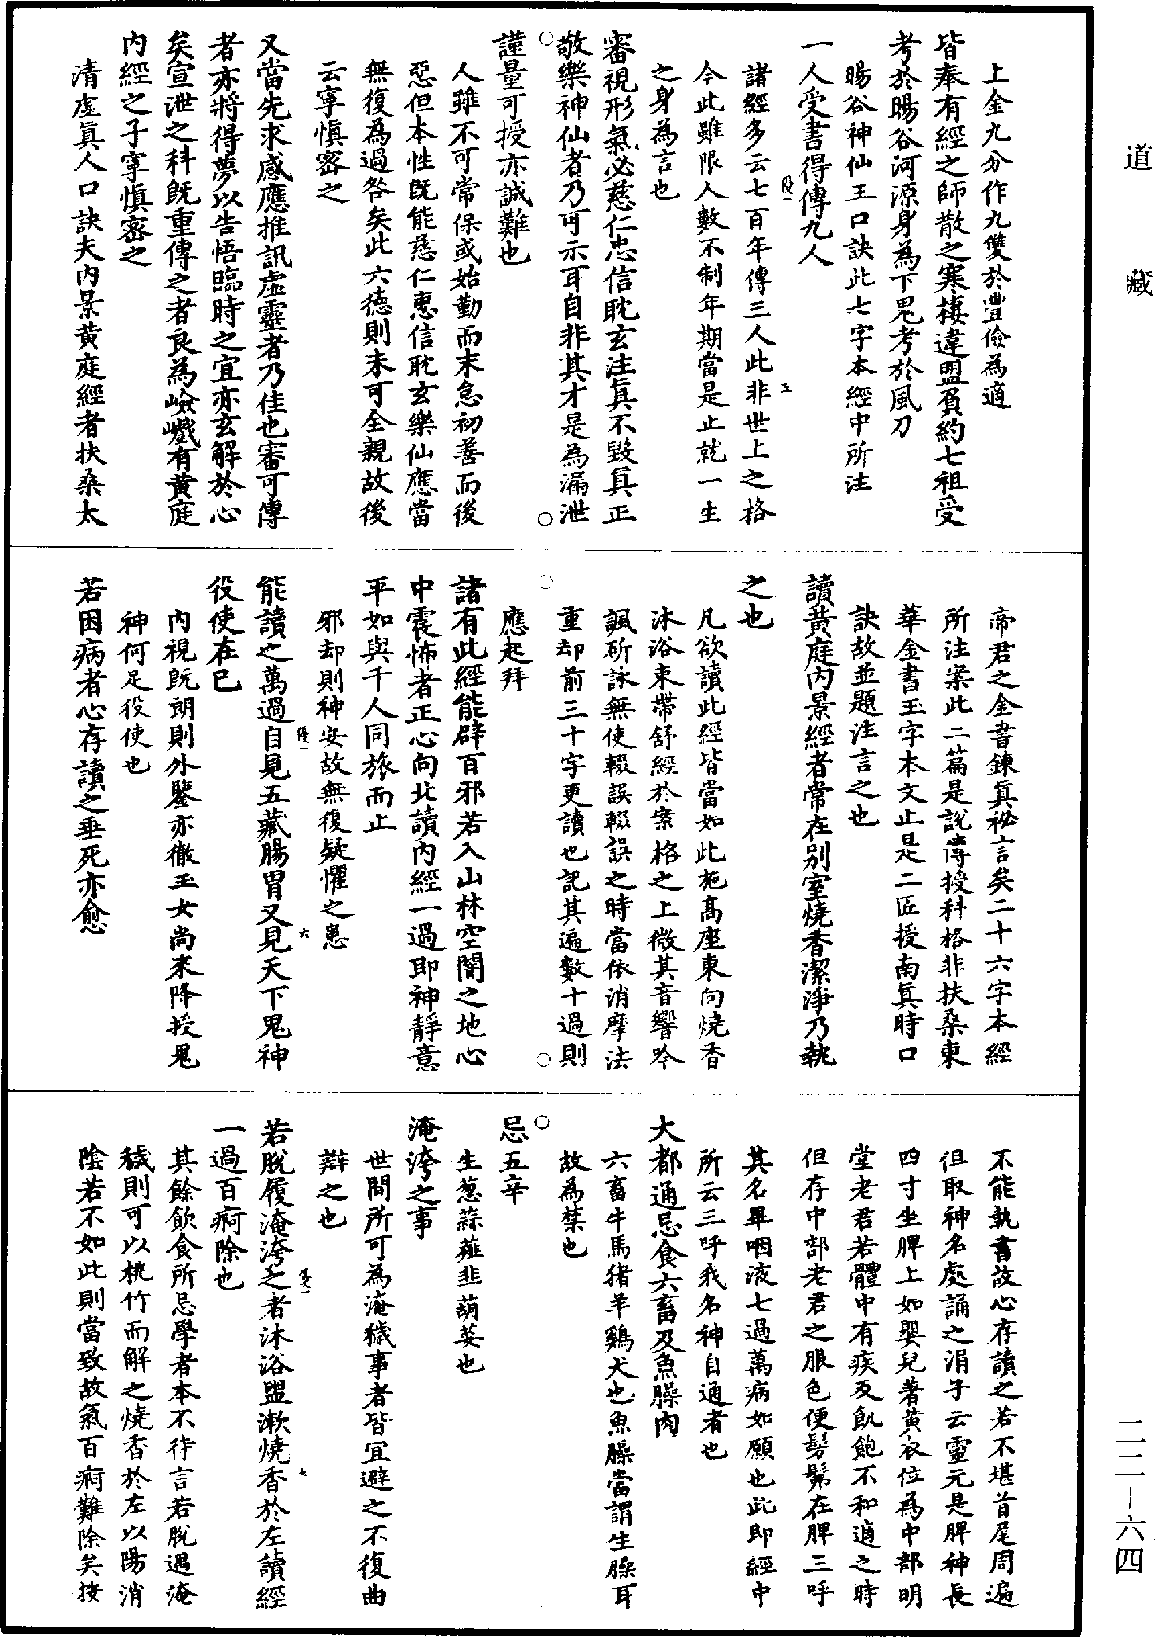 道藏
上金九分作九雙於豐儉為適
皆奉有經之師散之寒棲違盟負約七祖受
考於暘谷河源身為下鬼考於風刀
暘谷神仙王口訣此七字本經中所注
一人受書得傳九人
諸經多云七百年傳三人此非世上之格
今此雖限人數不制年期當是止就一生
之身為言也
審視形氣必慈仁忠信耽玄注真不毀真正
敬樂神仙者乃可示耳自非其才是為漏泄
謹量可授亦誠難也
人雖不可常保或始勤而末怠初善而後
惡但本性既能慈仁惠信耽玄樂仙應當
無復為過咎矣此六德則未可全親故後
云寧慎密之
又當先求感應推訊虛靈者乃佳也審可傳
者亦將得夢以告悟臨時之宜亦玄解於心
矣宣泄之科既重傳之者良為嶮巇有黃庭
內經之子寧慎密之
清虛真人口訣夫內景黃庭經者扶桑太
帝君之金書鍊真祕言矣二十六字本經
所注案此二篇是說傳授科格非扶桑東
華金書玉字本文止是二匠授南真時口
訣故並題注言之也
讀黃庭內景經者常在別室燒香潔淨乃執
之也
凡欲讀此經皆當如此施高座東向燒香
沐浴束帶舒經於案格之上微其音響吟
諷所詠無使輟誤輟誤之時當依消摩法
重却前三十字更讀也記其遍數十過則
應起拜
諸有此經能辟百邪若入山林空闇之地心
中震怖者正心向北讀內經一過即神靜意
平如與千人同旅而止
邪却則神安故無復疑懼之患
能讀之萬過自見五藏腸胃又見天下鬼神
役使在已
內視既朗則外鑒亦徹玉女尚來降授鬼
神何足役使也
若困病者心存讀之垂死亦愈
不能執書故心存讀之若不堪首尾周遍
但取神名處誦之涓子云靈元是脾神長
四寸坐脾上如嬰兒著黃衣位為中部明
堂老君若體中有疾及飢飽不和適之時
但存中部老君之服色便髣髴在脾三呼
其名畢咽液七過萬病如願也此即經中
所云三呼我名神自通者也
大都通忌食六畜及魚臊肉
六畜牛馬猪羊鷄犬也魚臊當謂生臊耳
故為禁也
忌五辛
生葱蒜薤韭葫荽也
淹洿之事
世間所可為淹穢事者皆宜避之不復曲
辯之也
若脫履淹洿之者沐浴盥漱燒香於左讀經
一過百痾除也
其餘飲食所忌學者本不待言若脫遇淹
穢則可以桃竹而解之燒香於左以陽消
陰若不如此則當致故氣百痾難除矣按
二二—六四